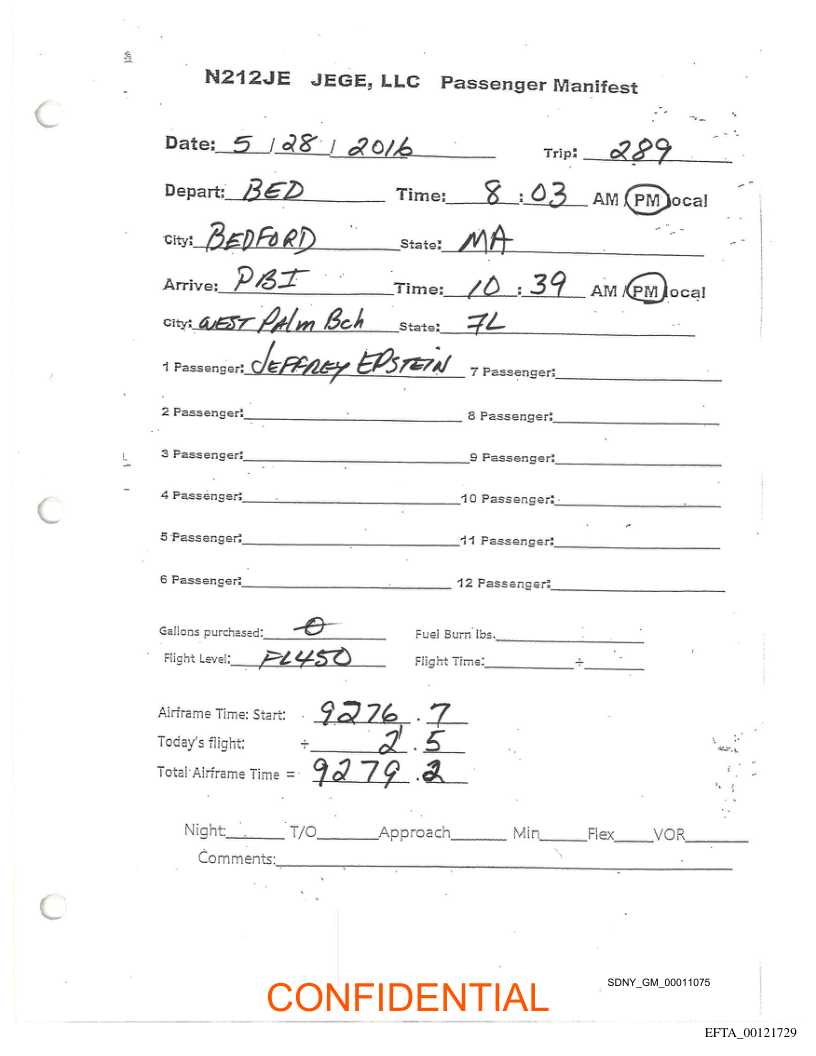 N212JE JEGE, LLC Passenger Manifest
Date: 5 / 28 / 2016 Trip: 289
Depart: BED Time: 8 : 03 AM PM local
City: BEDFORD State: MA
Arrive: PBI Time: 10 : 39 AM / PM local
City: WEST PAlm Bch State: FL
1 Passenger: JEFFREY EPSTEIN 7 Passenger:
2 Passenger: 8 Passenger:
3 Passenger: 9 Passenger:
4 Passenger: 10 Passenger:
5 Passenger: 11 Passenger:
6 Passenger: 12 Passenger:
Gallons purchased: 0 Fuel Burn lbs.
Flight Level: FL450 Flight Time: ÷
Airframe Time: Start: 9276 . 7
Today's flight: ÷ 2 . 5
Total Airframe Time = 9279 . 2
Night: T/O Approach Min Flex VOR
Comments:
CONFIDENTIAL
SDNY_GM_00011075
EFTA_00121729